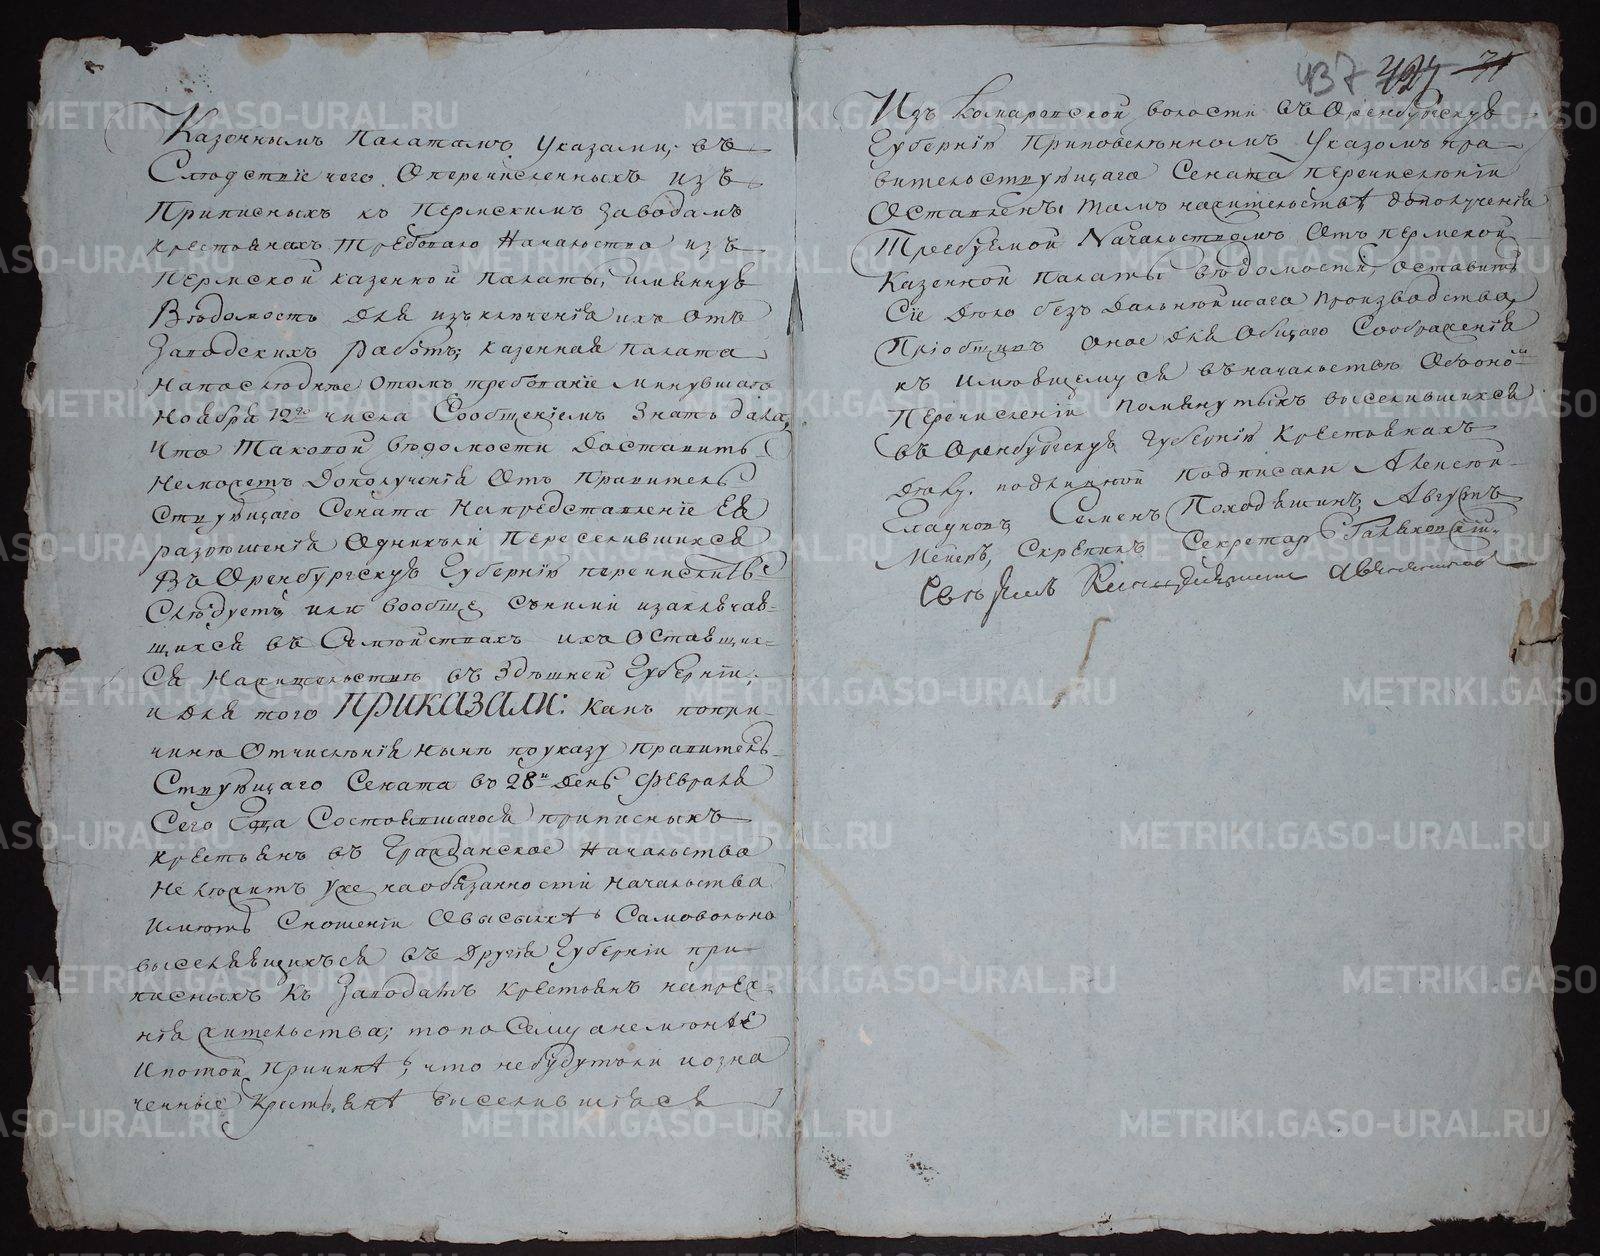 Казеннымъ Палатамъ Указами; въ
Слѣдствіе чего Оперечисленныхъ изъ
Приписныхъ къ Пермскимъ Заводамъ
крестьянахъ требовало Начальство изъ
Пермской казенной Палаты, имянную
Вѣдомость для изъключенія ихъ отъ
Заводскихъ работъ; казенная палата
напослѣднѣе отомъ требованіе минувшаго
Ноября 12го числа Сообщеніемъ Знать дала,
что таковой вѣдомости доставить
неможетъ дополученія Отъ Правитель
Ствующаго Сената Напредставленіе Ея
разрѣшенія Однихъли Переселившихся
Въ Оренбургскую Губернію перечислить
Слѣдуетъ или вообще Съними изаключаю
щихся въ Семѣйствахъ ихъ Оставших
ся Нажительствѣ въ Здѣшней Губерніи;
и для того ПРИКАЗАЛИ: Какъ попри
чинѣ Отчисленія нынѣ поуказу Правитель
Ствующаго Сената въ 28й День Февраля
Сего Года Состоявшагося приписныхъ
крестьянъ въ Гражданское Начальство
Нележитъ уже наобязанности начальства
имѣть Сношеніи Овысылкѣ Самовольно
выселяющихъся въ Другія Губерніи при
писныхъ къ Заводамъ крестьянъ напреж
нія жительства; то по Сему анеменѣе
Ипотой Причинѣ, что небудутъли иозна
ченные Крестьянѣ выселившіяся
437 424 71
Изъ Комаровской волости въ Оренбургскую
Губернію Приповелѣнномъ Указомъ пра
вительствующаго Сената перечисленіи
Оставлены тамъ нажительствѣ, дополученія
Требуемой Начальствомъ Отъ пермской
Казенной палаты вѣдомости, оставить
Сіе дѣло безъ дальнѣйшаго производства
Пріобщивъ оное для общаго Соображенія
къ имѣющемуся въначальствѣ Обоно
Перечисленіи помянутыхъ выселившихся
въ Оренбургскую Губернію Крестьянахъ
дѣлу. подлинной подписали Алексѣй
Гладковъ, Семенъ Походяшинъ, Августъ
Мейеръ, Скрѣпилъ Секретарь
Свѣрялъ